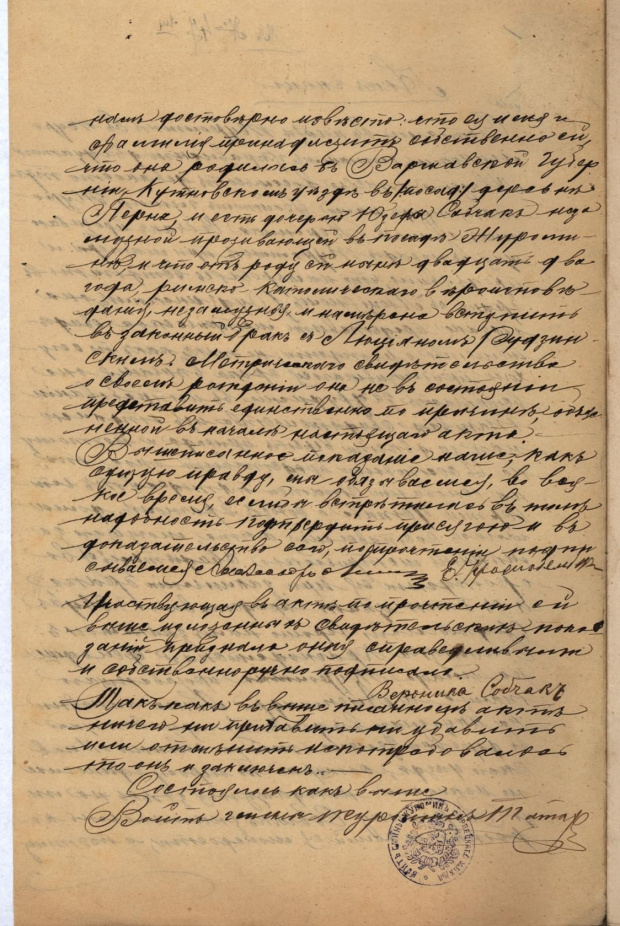 намъ достовѣрно извѣстно: что ея имя и
фамилія принадлежитъ собственно ей,
что она родилась въ Варшавской Губер
ніи, Кутновскомъ уѣздѣ въ посадѣ деревнѣ
Перна, и есть дочерью Юзефы Собчакъ неза
мужной проживающей въ посадѣ Журоми-
нѣ, и что отъ роду ей нынѣ двадцать два
года, римско католическаго вѣроисповѣ-
данія, незамужняя и намѣрена вступить
въ законный бракъ съ Люціаномъ Рудзин-
скимъ. Метрическаго свидѣтельства
о своемъ рожденіи она не въ состояніи
представить единственно по причинѣ, объяс
ненной въ началѣ настоящаго акта.
Вышеписанное показаніе наше, какъ
сущую правду, мы обязываемся, во вся-
кое время, если бы встрѣтилась въ томъ
надобность подтвердить присягою и въ
доказательство сего, по прочтеніи подпи
сываемся
Участвующая въ актѣ по прочтеніи ей
выше изложенныхъ свидѣтельскихъ пока
заній признала оныя справедливыми
и собственноручно подписала.
Вероника Собчакъ
Такъ какъ въ выше писанномъ актѣ
ничего ни прибавить ни убавить
или отмѣнить не потребовалось
то онъ и заключенъ.
Состоялось какъ выше
Войтъ гмины Журоминъ